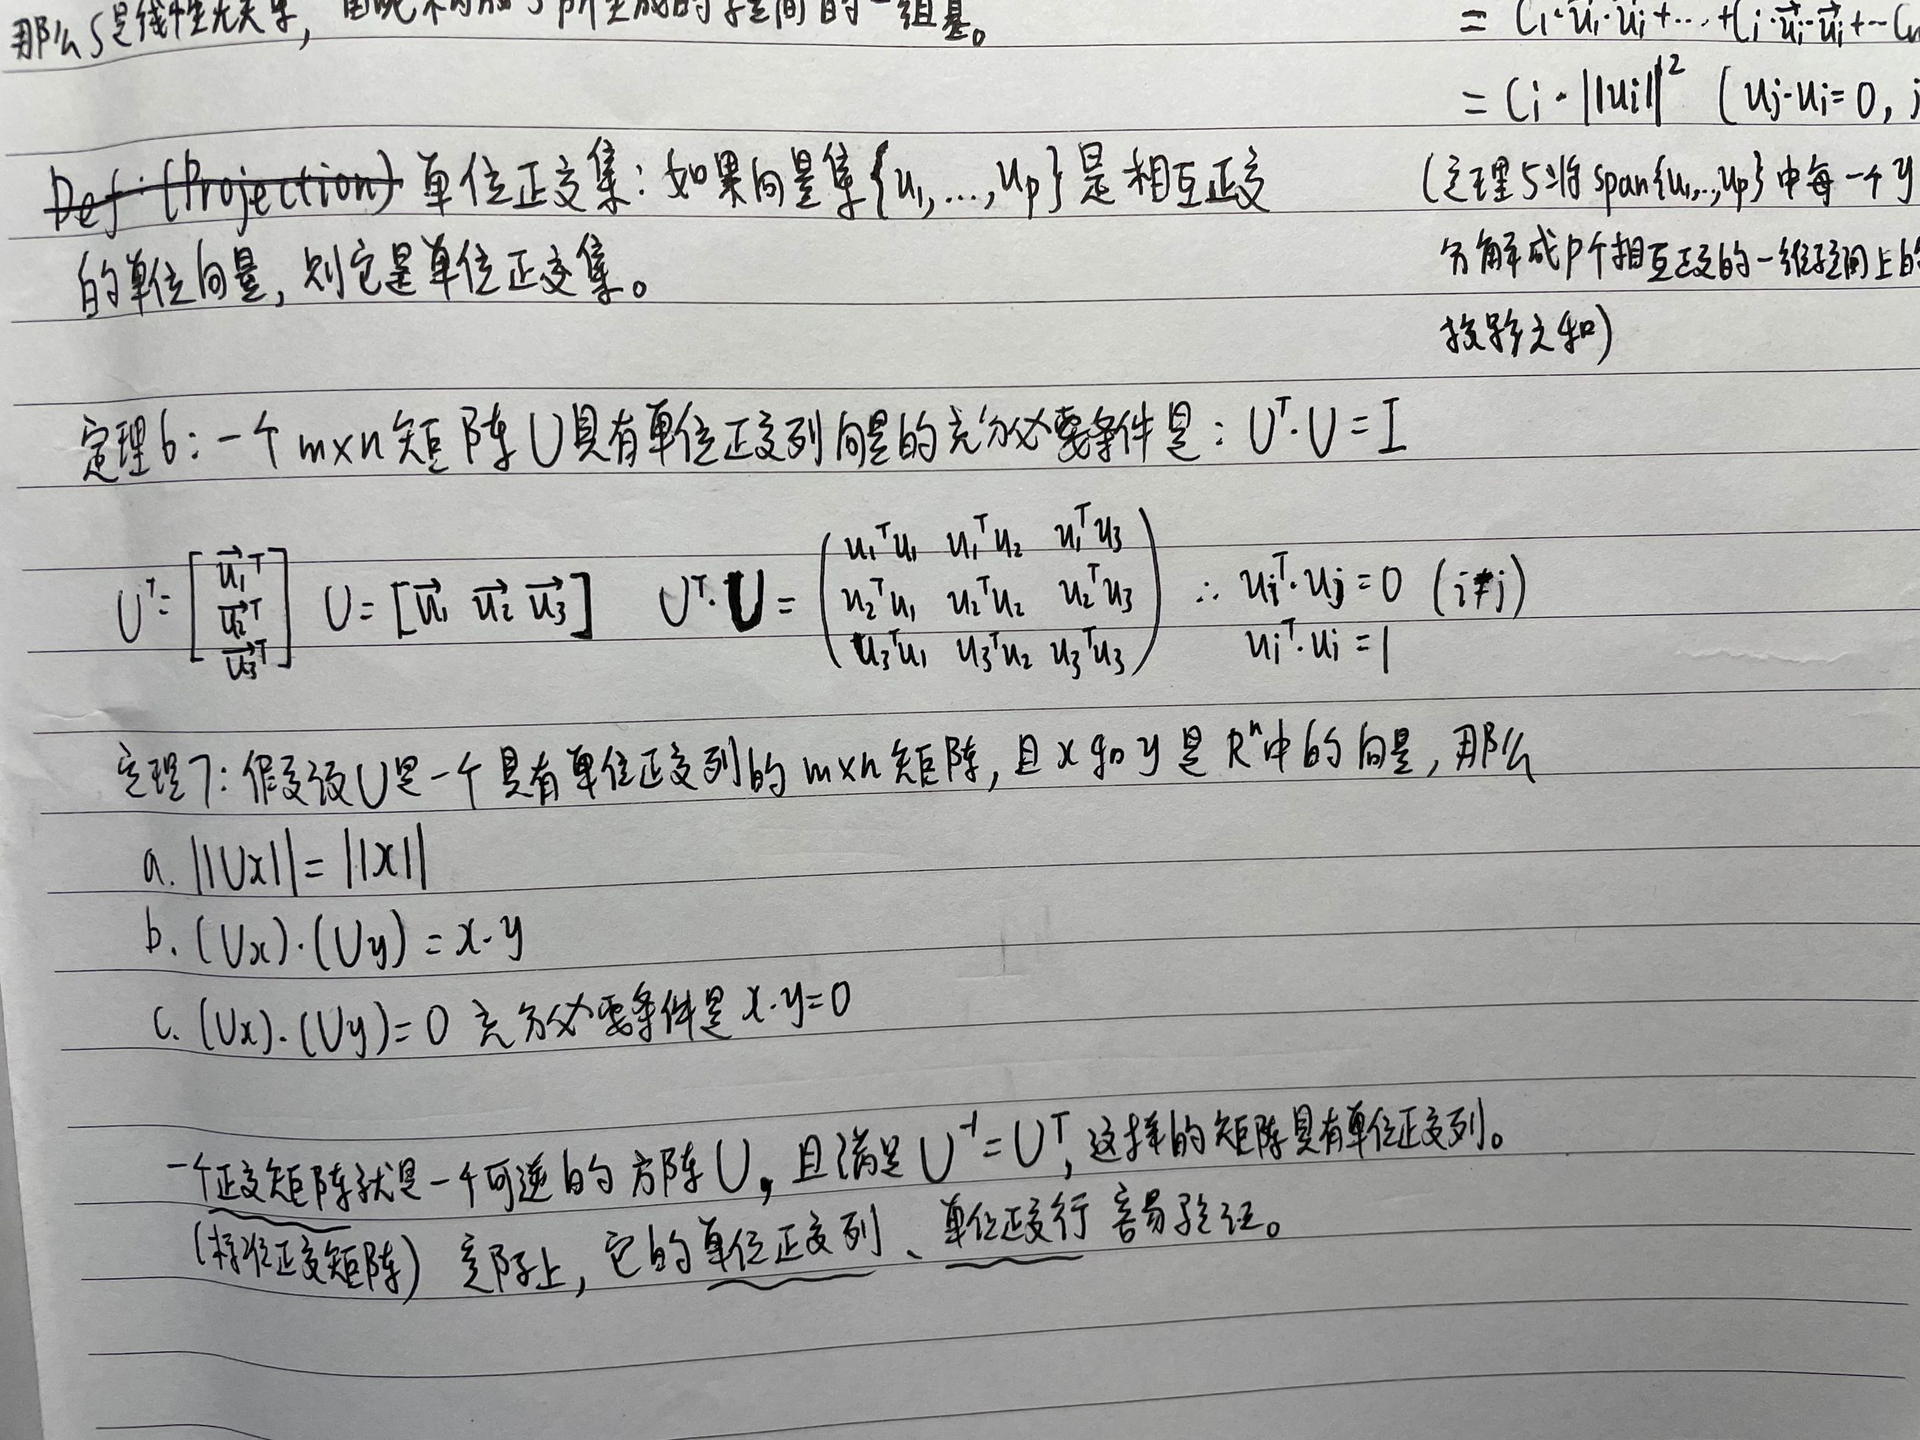 那么S是线性无关集，因此构成S所生成的子空间的一组基。
= Ci·u⃗i·u⃗i+…+Ci·u⃗i·u⃗i+…
= Ci·||ui||² (uj·ui=0,
Def: (Projection) 单位正交集：如果向量集{u₁,…,up}是相互正交
的单位向量，则它是单位正交集。
(定理5将span{u₁,…,up}中每一个y
分解成P个相互正交的一维子空间上的
投影之和)
定理6：一个m×n矩阵U具有单位正交列向量的充分必要条件是：Uᵀ·U=I
Uᵀ= [u⃗₁ᵀ u⃗₂ᵀ u⃗₃ᵀ] U=[u⃗₁ u⃗₂ u⃗₃] Uᵀ·U=
(u₁ᵀu₁ u₁ᵀu₂ u₁ᵀu₃
u₂ᵀu₁ u₂ᵀu₂ u₂ᵀu₃
u₃ᵀu₁ u₃ᵀu₂ u₃ᵀu₃)
∴ uiᵀ·uj=0 (i≠j)
uiᵀ·ui=1
定理7：假设U是一个具有单位正交列的m×n矩阵，且x和y是Rⁿ中的向量，那么
a. ||Ux||=||x||
b. (Ux)·(Uy)=x·y
c. (Ux)·(Uy)=0 充分必要条件是x·y=0
一个正交矩阵就是一个可逆的方阵U，且满足U⁻¹=Uᵀ，这样的矩阵具有单位正交列。
(标准正交矩阵) 实际上，它的单位正交列、单位正交行容易验证。